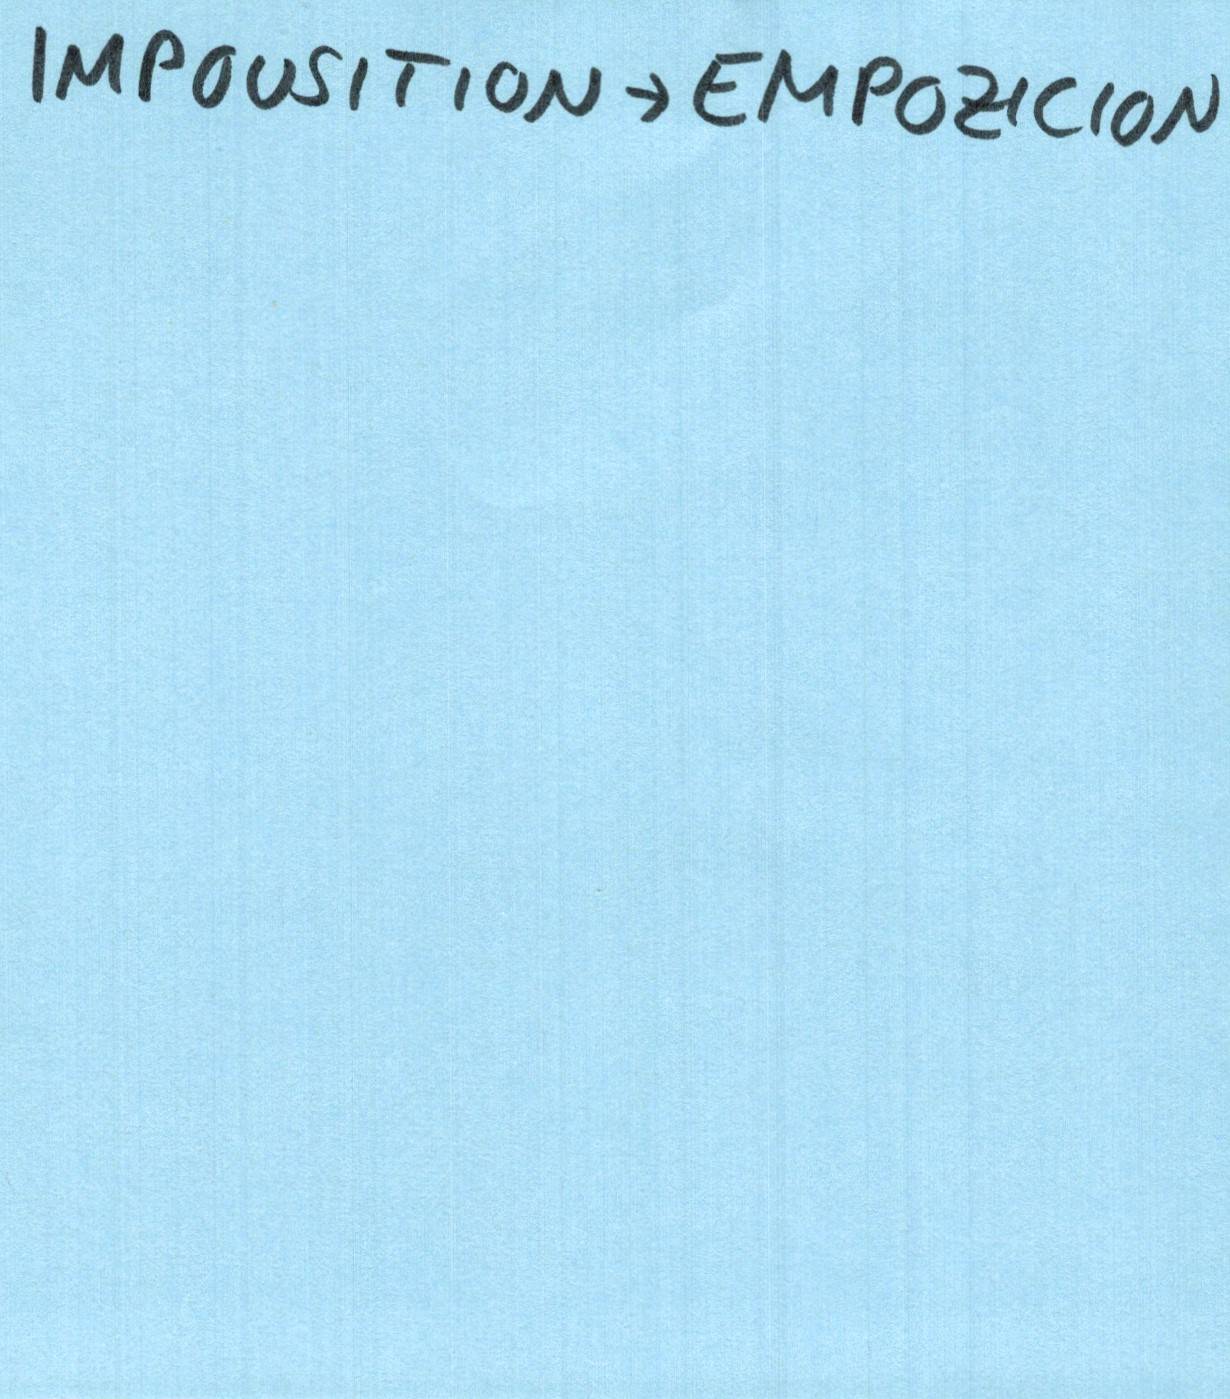 IMPOUSITION → EMPOZICION